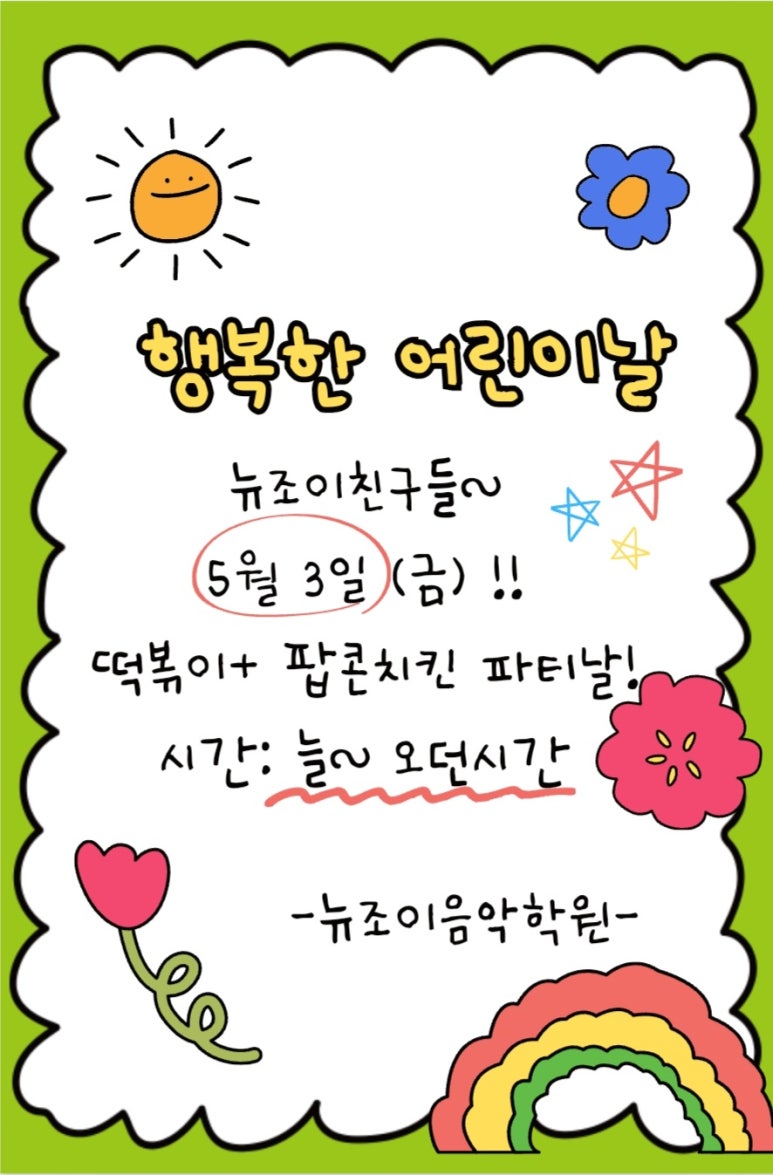 행복한 어린이날
뉴조이친구들~
5월 3일 (금) !!
떡볶이+ 팝콘치킨 파티날!
시간: 늘~ 오던시간
-뉴조이음악학원-